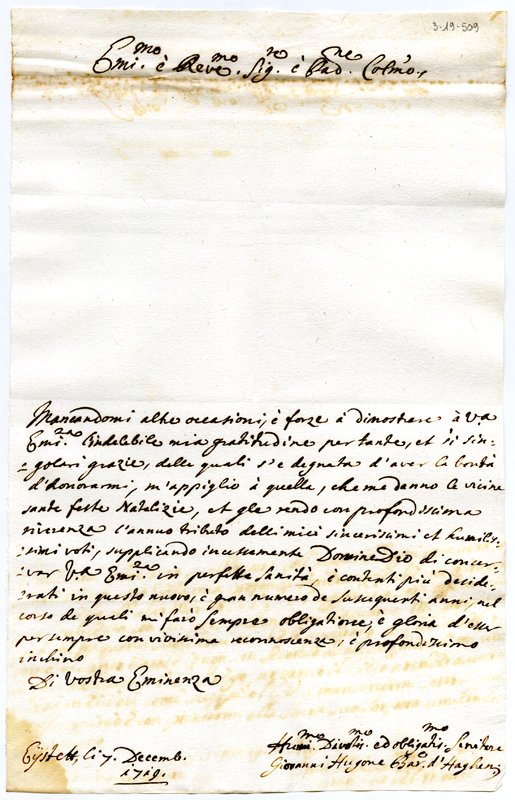 3-19-509
Emi.mo è Revmo. Sig.re è Pad.ne Colmo.,
Mancandomi altre occasioni, è forze à dimostrare à V.a
Emi.za l'indelebile mia gratitudine per tante, et sì sin-
golari grazie, delle quali s'è degnata d'aver la bontà
d'honorarmi, m'appiglio à quella, che me danno le vicine
sante feste Natalizie, et gle rendo con profondissima
riverenza l'annuo tributo delli miei sincerissimi et humilis-
simi voti, supplicando incessemente Domine Dio di concer-
var V.a Emi.za in perfetta sanità, è contenti più decide-
rati in questo nuovo, è gran numero de susseguenti anni, nel
corso de quali mi farò sempre obligatione, è gloria d'esser
per sempre con vivissima reconnoscenza, è profondissimo
inchino
Di Vostra Eminenza
Eystett, li 7. Decemb.
1719.
Humi.mo Divotis.mo ed obligatis.mo Servitore
Giovanni Hugone Bar. d'Haghen